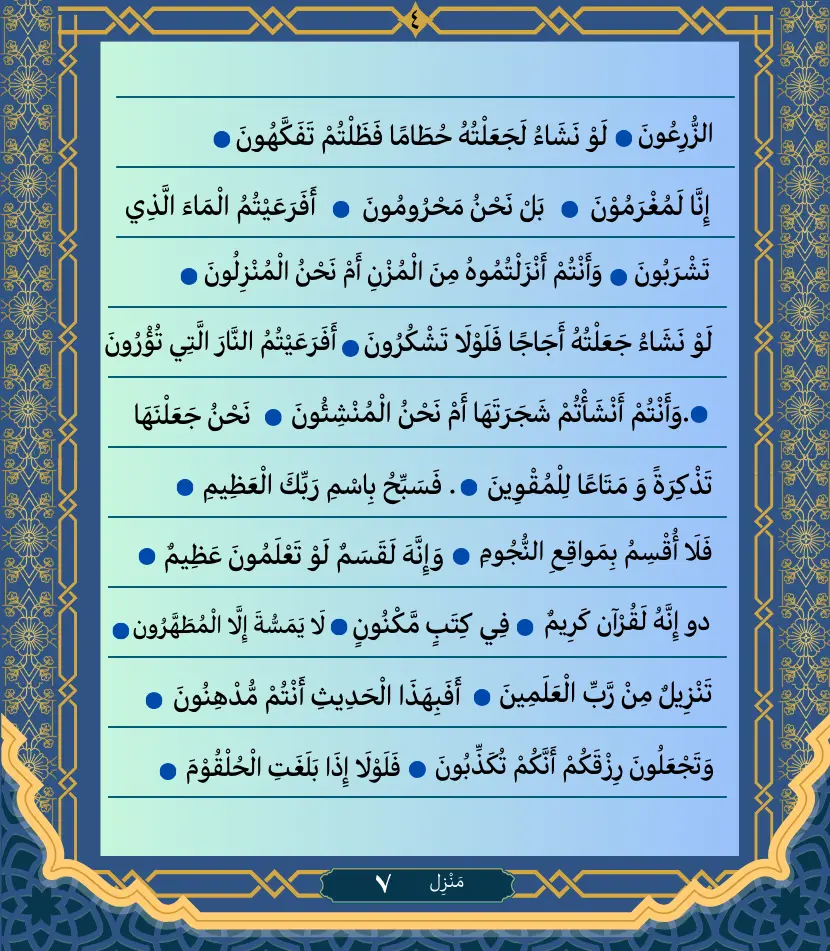 ٤
الزُّرِعُونَ ● لَوْ نَشَاءُ لَجَعَلْتُهُ حُطَامًا فَظَلْتُمْ تَفَكَّهُونَ ●
إِنَّا لَمُغْرَمُوْنَ ● بَلْ نَحْنُ مَحْرُومُونَ ● أَفَرَعَيْتُمُ الْمَاءَ الَّذِي
تَشْرَبُونَ ● وَأَنْتُمْ أَنْزَلْتُمُوهُ مِنَ الْمُزْنِ أَمْ نَحْنُ الْمُنْزِلُونَ ●
لَوْ نَشَاءُ جَعَلْتُهُ أَجَاجًا فَلَوْلَا تَشْكُرُونَ ● أَفَرَعَيْتُمُ النَّارَ الَّتِي تُؤْرُونَ
● .وَأَنْتُمْ أَنْشَأْتُمْ شَجَرَتَهَا أَمْ نَحْنُ الْمُنْشِئُونَ ● نَحْنُ جَعَلْنَهَا
تَذْكِرَةً وَ مَتَاعًا لِلْمُقْوِينَ ● . فَسَبِّحُ بِاسْمِ رَبِّكَ الْعَظِيمِ ●
فَلَا أُقْسِمُ بِمَواقِعِ النُّجُومِ ● وَإِنَّهَ لَقَسَمٌ لَوْ تَعْلَمُونَ عَظِيمٌ ●
دو إِنَّهُ لَقُرْآن كَرِيمٌ ● فِي كِتَبٍ مَّكْنُونٍ ● لَا يَمَسُّهَ إِلَّا الْمُطَهَّرُون ●
تَنْزِيلٌ مِنْ رَّبِّ الْعَلَمِينَ ● أَفَبِهَذَا الْحَدِيثِ أَنْتُمْ مُّدْهِنُونَ ●
وَتَجْعَلُونَ رِزْقَكُمْ أَنَّكُمْ تُكَذِّبُونَ ● فَلَوْلَا إِذَا بَلَغَتِ الْحُلْقُوْمَ ●
مَنْزِل ٧